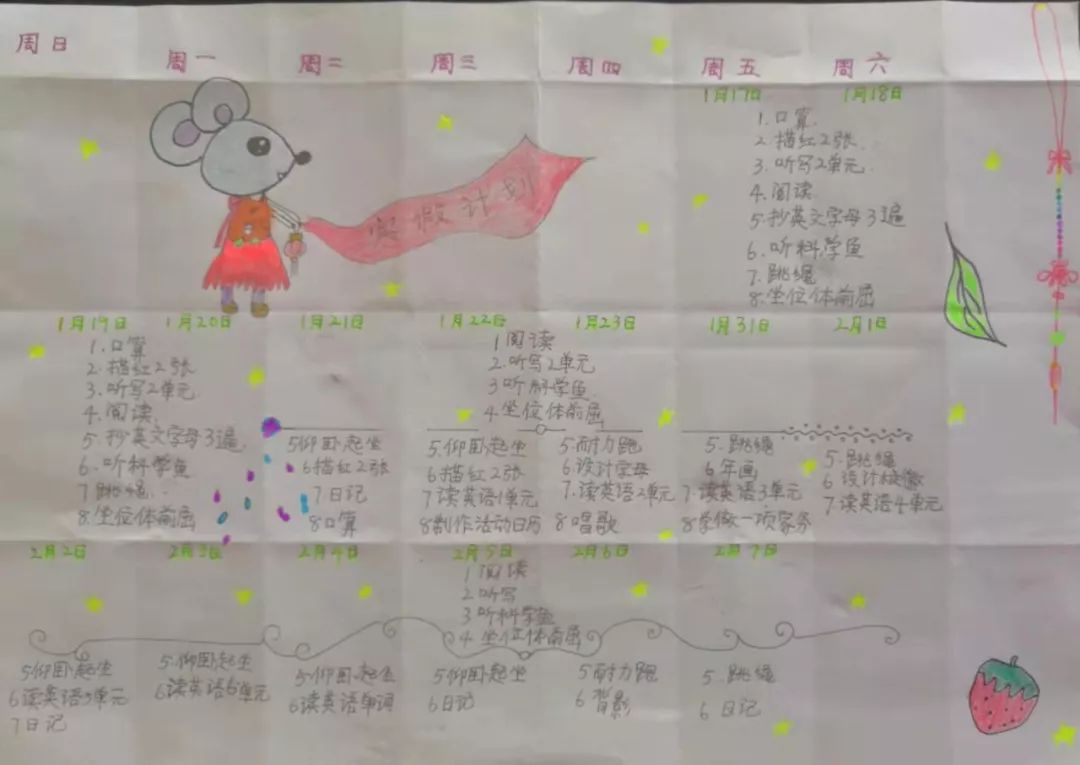 周日 周一 周二 周三 周四 周五 周六
寒假计划
1月17日 1月18日
1.口算.
2.描红2张.
3.听写2单元.
4.阅读.
5.抄英文字母3遍
6.听科学鱼
7.跳绳
8.坐位体前屈
1月19日 1月20日 1月21日 1月22日 1月23日 1月31日 2月1日
1.口算
2.描红2张
3.听写2单元
4.阅读.
5.抄英文字母3遍.
6.听科学鱼
7跳绳.
8.坐位体前屈
1阅读
2.听写2单元
3听科学鱼
4坐位体前屈
5仰卧起坐
6描红2张
7日记
8口算
5仰卧起坐
6描红2张
7读英语1单元
8制作活动日历
5.耐力跑
6.设计字母
7.读英语2单元
8唱歌
5.跳绳
6年画
7读英语3单元
8学做一项家务
5.跳绳
6设计校徽
7读英语4单元
2月2日 2月3日 2月4日 2月5日 2月6日 2月7日
1阅读
2听写
3听科学鱼
4坐位体前屈
5仰卧起坐
6读英语5单元
7日记
5.仰卧起坐
6读英语6单元
5.仰卧起坐
6读英语单词
5仰卧起坐
6日记
5耐力跑
6背影
5.跳绳
6日记